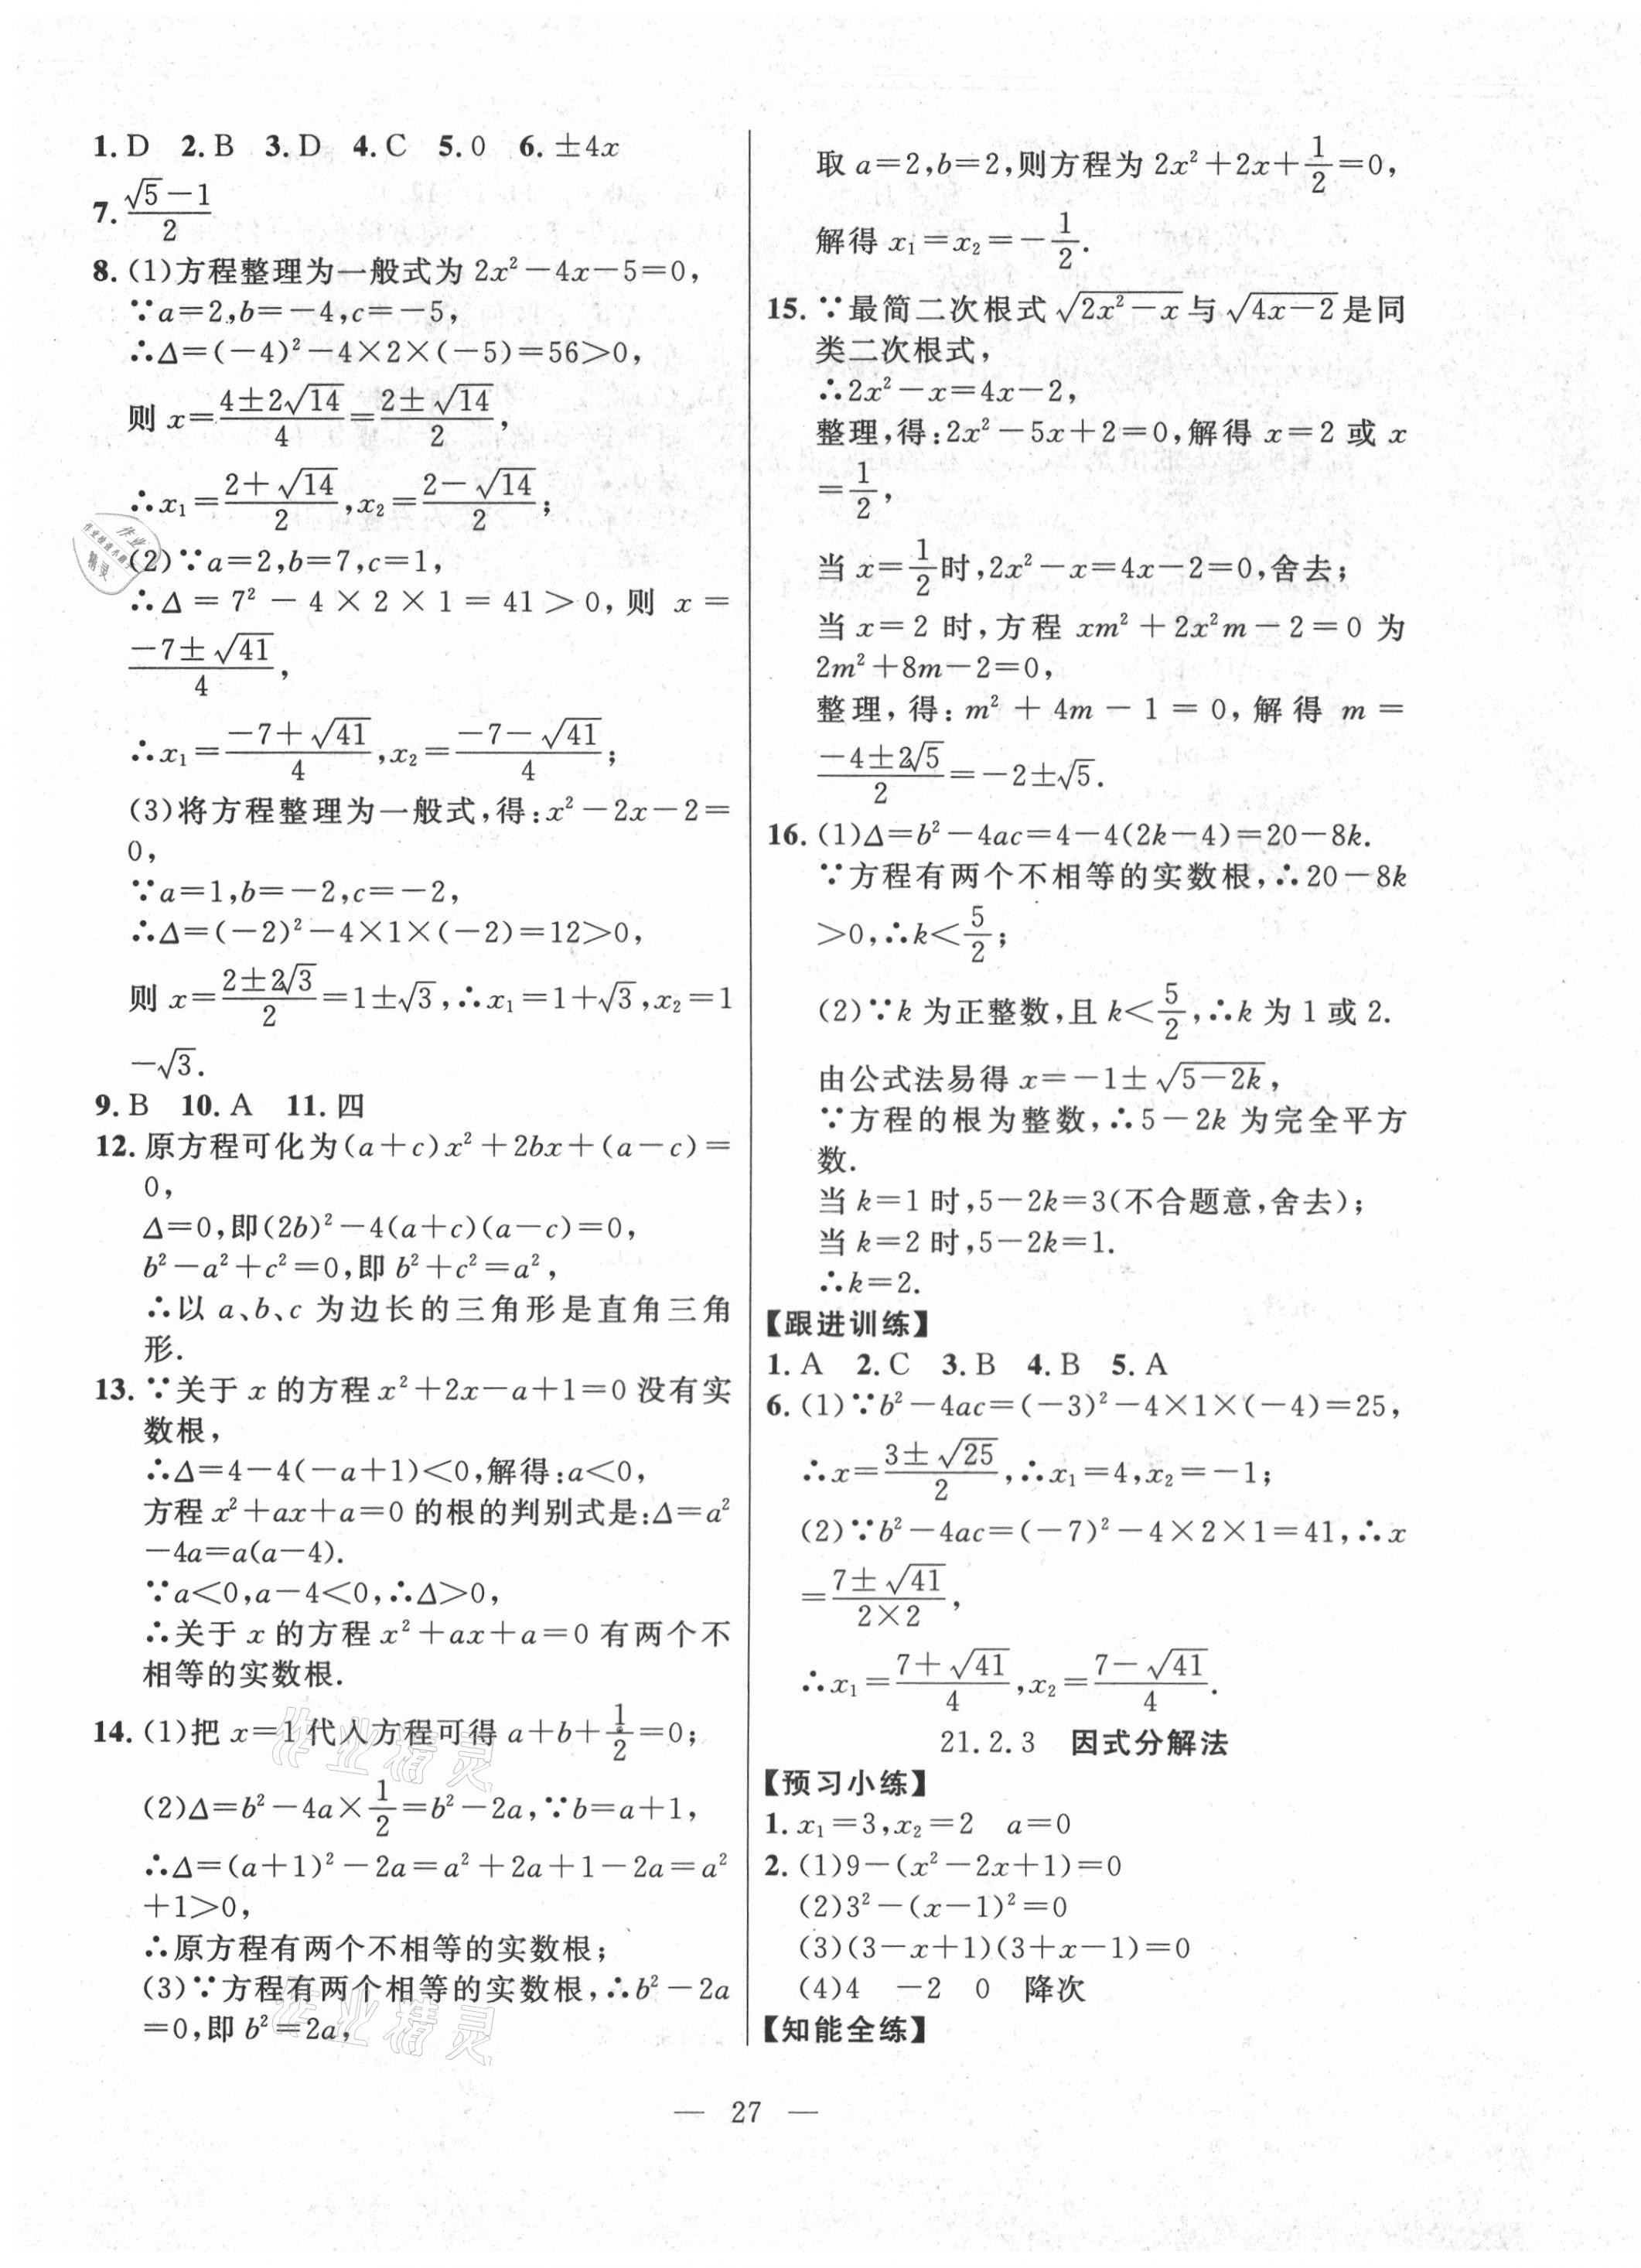 1. D  2. B  3. D  4. C  5. 0  6. ±4x
7. (√5−1)/2
8. (1)方程整理为一般式为 2x²−4x−5=0,
∵a=2,b=−4,c=−5,
∴Δ=(−4)²−4×2×(−5)=56>0,
则 x=(4±2√14)/4=(2±√14)/2,
∴x₁=(2+√14)/2,x₂=(2−√14)/2;
(2)∵a=2,b=7,c=1,
∴Δ=7²−4×2×1=41>0,则 x=
(−7±√41)/4,
∴x₁=(−7+√41)/4,x₂=(−7−√41)/4;
(3)将方程整理为一般式,得:x²−2x−2=
0,
∵a=1,b=−2,c=−2,
∴Δ=(−2)²−4×1×(−2)=12>0,
则 x=(2±2√3)/2=1±√3,∴x₁=1+√3,x₂=1
−√3.
9. B  10. A  11. 四
12. 原方程可化为(a+c)x²+2bx+(a−c)=
0,
Δ=0,即(2b)²−4(a+c)(a−c)=0,
b²−a²+c²=0,即 b²+c²=a²,
∴以 a、b、c 为边长的三角形是直角三角
形.
13. ∵关于 x 的方程 x²+2x−a+1=0 没有实
数根,
∴Δ=4−4(−a+1)<0,解得:a<0,
方程 x²+ax+a=0 的根的判别式是:Δ=a²
−4a=a(a−4).
∵a<0,a−4<0,∴Δ>0,
∴关于 x 的方程 x²+ax+a=0 有两个不
相等的实数根.
14. (1)把 x=1代入方程可得 a+b+1/2=0;
(2)Δ=b²−4a×1/2=b²−2a,∵b=a+1,
∴Δ=(a+1)²−2a=a²+2a+1−2a=a²
+1>0,
∴原方程有两个不相等的实数根;
(3)∵方程有两个相等的实数根,∴b²−2a
=0,即 b²=2a,
取 a=2,b=2,则方程为 2x²+2x+1/2=0,
解得 x₁=x₂=−1/2.
15. ∵最简二次根式√(2x²−x)与√(4x−2)是同
类二次根式,
∴2x²−x=4x−2,
整理,得:2x²−5x+2=0,解得 x=2 或 x
=1/2,
当 x=1/2时,2x²−x=4x−2=0,舍去;
当 x=2 时,方程 xm²+2x²m−2=0 为
2m²+8m−2=0,
整理,得:m²+4m−1=0,解得 m=
(−4±2√5)/2=−2±√5.
16. (1)Δ=b²−4ac=4−4(2k−4)=20−8k.
∵方程有两个不相等的实数根,∴20−8k
>0,∴k<5/2;
(2)∵k 为正整数,且 k<5/2,∴k 为 1 或 2.
由公式法易得 x=−1±√(5−2k),
∵方程的根为整数,∴5−2k 为完全平方
数.
当 k=1 时,5−2k=3(不合题意,舍去);
当 k=2 时,5−2k=1.
∴k=2.
【跟进训练】
1. A  2. C  3. B  4. B  5. A
6. (1)∵b²−4ac=(−3)²−4×1×(−4)=25,
∴x=(3±√25)/2,∴x₁=4,x₂=−1;
(2)∵b²−4ac=(−7)²−4×2×1=41,∴x
=(7±√41)/(2×2),
∴x₁=(7+√41)/4,x₂=(7−√41)/4.
21.2.3  因式分解法
【预习小练】
1. x₁=3,x₂=2  a=0
2. (1)9−(x²−2x+1)=0
(2)3²−(x−1)²=0
(3)(3−x+1)(3+x−1)=0
(4)4  −2  0  降次
【知能全练】
— 27 —
作业精灵
作业精灵
作业精灵